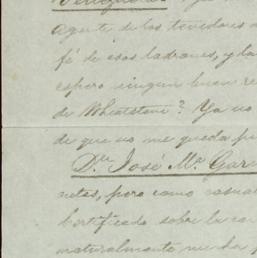 Venezuela.
agente de los tenedores
fé de esos ladrones, y la
espero ningun buen re
de Wheatstone? Ya no
de que no me queda
Dn José Ma Gar
netes, pero como
certificado sobre la ca
naturalmente